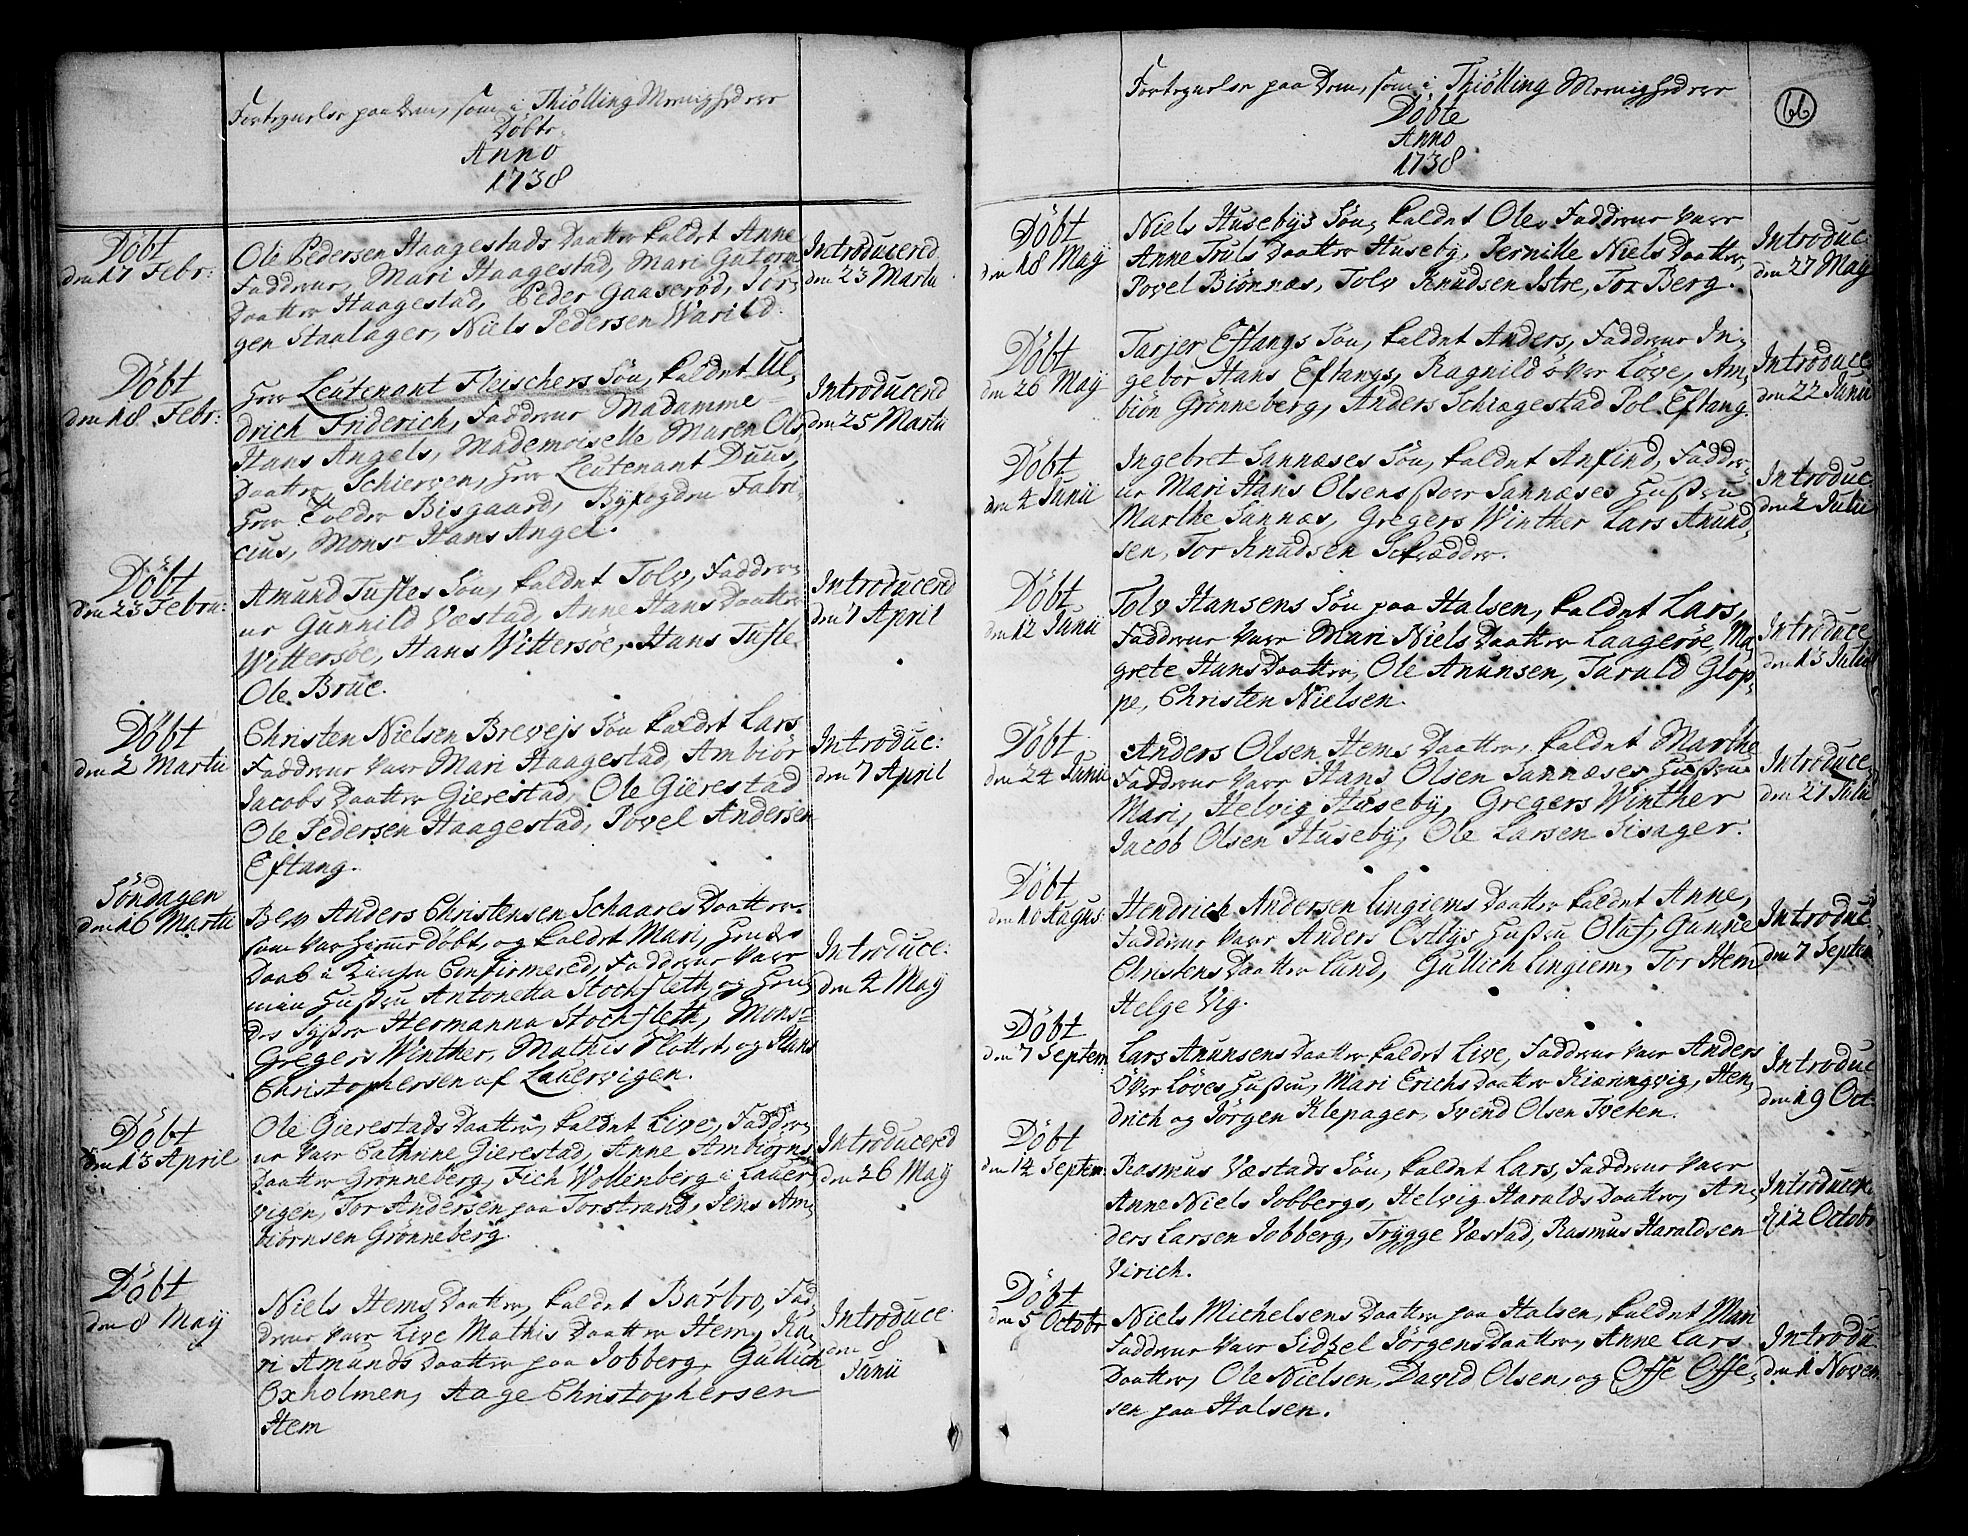 Fortegnelse paa Dem, som i Thiölling Menighed ere
Döbte
Anno
1738
Döbt
den 17 Febr:
Ole Pedersen Haagestads Daatter kaldet Anne
Faddrene, Mari Haagestad, Mari Gutorm
Daatter Haagestad, Peder Gaaserød, Jör-
gen Staalager, Niels Pedersen Warild.
Introducered
den 23 Martii
Döbt
den 18 Febr:
Herr Leutenant Fleischers Sön, kaldet Ul-
drich Friderich, Faddrene Madamme
Hans Angels, Mademoiselle Maren Ols
Daatter Schierven, Herr Leutenant Duus,
Herr Tolder Bisgaard, Byfogden Fabri-
cius, Monsr Hans Angel.
Introducered
den 25 Martii
Döbt
den 23 Febru:
Amund Tuftes Sön, kaldet Tolv, Faddre-
ne Gunnild Væstad, Anne Hans Daatter
Wittersöe, Hans Wittersöe, Hans Tufte
Ole Brue.
Introducered
den 7 April
Döbt
den 2 Martii
Christen Nielsen Brevejs Sön kaldet Lars
Faddrene vare Mari Haagestad, Ambiör
Jacobs Daatter Gierestad, Ole Gierestad
Ole Pedersen Haagestad, Povel Andersen
Eftang.
Introduc:
den 7 April
Söndagen
den 16 Martii
Blev Anders Christensen Schaares Daatter
som var hiemme Döbt, og kaldet Mari, hendes
Daab i Kirken Confirmered, Faddrene vare
min Hustru Antonetta Stochfleth, og hen-
des Syster Hermanna Stochfleth, Monsr
Gregers Winther, Mathis Flottet, og Hans
Christophersen af Lauervigen.
Introduce:
den 4 May
Döbt
den 13 April
Ole Gierestads Daatter, kaldet Live, Faddre-
ne vare Cathrine Gierestad, Anne Ambiörns
Daatter Grönneberg, Fich Wollenberg i Lauer-
vigen, Tor Andersen paa Torstrand, Jens Am-
biörnsen Grönneberg.
Introducered
den 26 May
Döbt
den 8 May
Niels Hems Daatter, kaldet Barbro, Fad-
drene vare Live Mathis Daatter Hem, Ka-
ri Amunds Daatter paa Jobberg, Gullich
Oxholmen, Aage Christophersen
Hem
Introduce
den 8
Junii
Fortegnelse paa Dem, som i Thiölling Menighed ere
66
Döbte
Anno
1738
Döbt
den 18 May
Niels Husebys Sön, kaldet Ole, Faddrene vare
Anne Truls Daatter Huseby, Pernille Niels Daatter,
Povel Biönnæs, Tolv Knudsen Istre, Tor Berg.
Introduc:
den 27 May
Döbt
den 26 May
Tarjer Eftangs Sön, kaldet Anders, Faddrene In-
gebor Hans Eftangs, Ragnild över Löve, Am-
biön Grönneberg, Anders Schiagestad Pol Eftang.
Introduce
den 22 Junii
Döbt
den 4 Junii
Ingebret Sannæses Sön, kaldet Anfind, Faddre-
ne Mari Hans Olsens store Sannæses Hustru
Marthe Sannæs, Gregers Winther Lars Anund-
sen, Tor Knudsen Schrædder.
Introduc:
den 2 Julii
Döbt
den 12 Junii
Tolv Hansens Sön paa Halsen, kaldet Lars,
Faddrene vare Mari Niels Daatter Laageröe, Ma-
grete Hans Daatter, Ole Anunsen, Tarald Glop-
pe, Christen Nielsen.
Introduce
den 13 Julii
Döbt
den 24 Junii
Anders Olsen Hems Daatter, kaldet Marthe
Faddrene vare Hans Olsen Sannæses Hustru
Mari, Helvig Huseby, Gregers Winther
Jacob Olsen Huseby, Ole Larsen Sisager.
Introduce
den 27 Julii
Döbt
den 10 Augus:
Hendrich Andersen Lingiems Daatter kaldet Anne,
Faddrene vare Anders Östbys Hustru Oluf, Gunne
Christens Daatter Lund, Gullich Lingiem, Tor Hem
Helge Vig.
Introduc:
den 7 Septem
Döbt
den 7 Septem
Lars Anunsens Daatter kaldet Live, Faddrene vare Anders
Över Löves Hustru, Mari Erichs Daatter Kiæringvig, Hen-
drich og Jörgen Klepager, Svend Olsen Tveten.
Introduc
den 19 Oct
Döbt
den 14 Septem
Rasmus Væstads Sön, kaldet Lars, Faddrene vare
Anne Niels Jobbergs, Helvig Haralds Daatter, An-
ders Larsen Jobberg, Trygge Væstad, Rasmus Haraldsen
Virich.
Introducere
d 12 Octobr
Döbt
den 5 Octobr
Niels Michelsens Daatter paa Halsen, kaldet Mari
Faddrene vare Sidzel Jörgens Daatter, Anne Lars
Daatter, Ole Nielsen, David Olsen, og Offe Offe-
sen paa Halsen.
Introdu
den 1 Novem